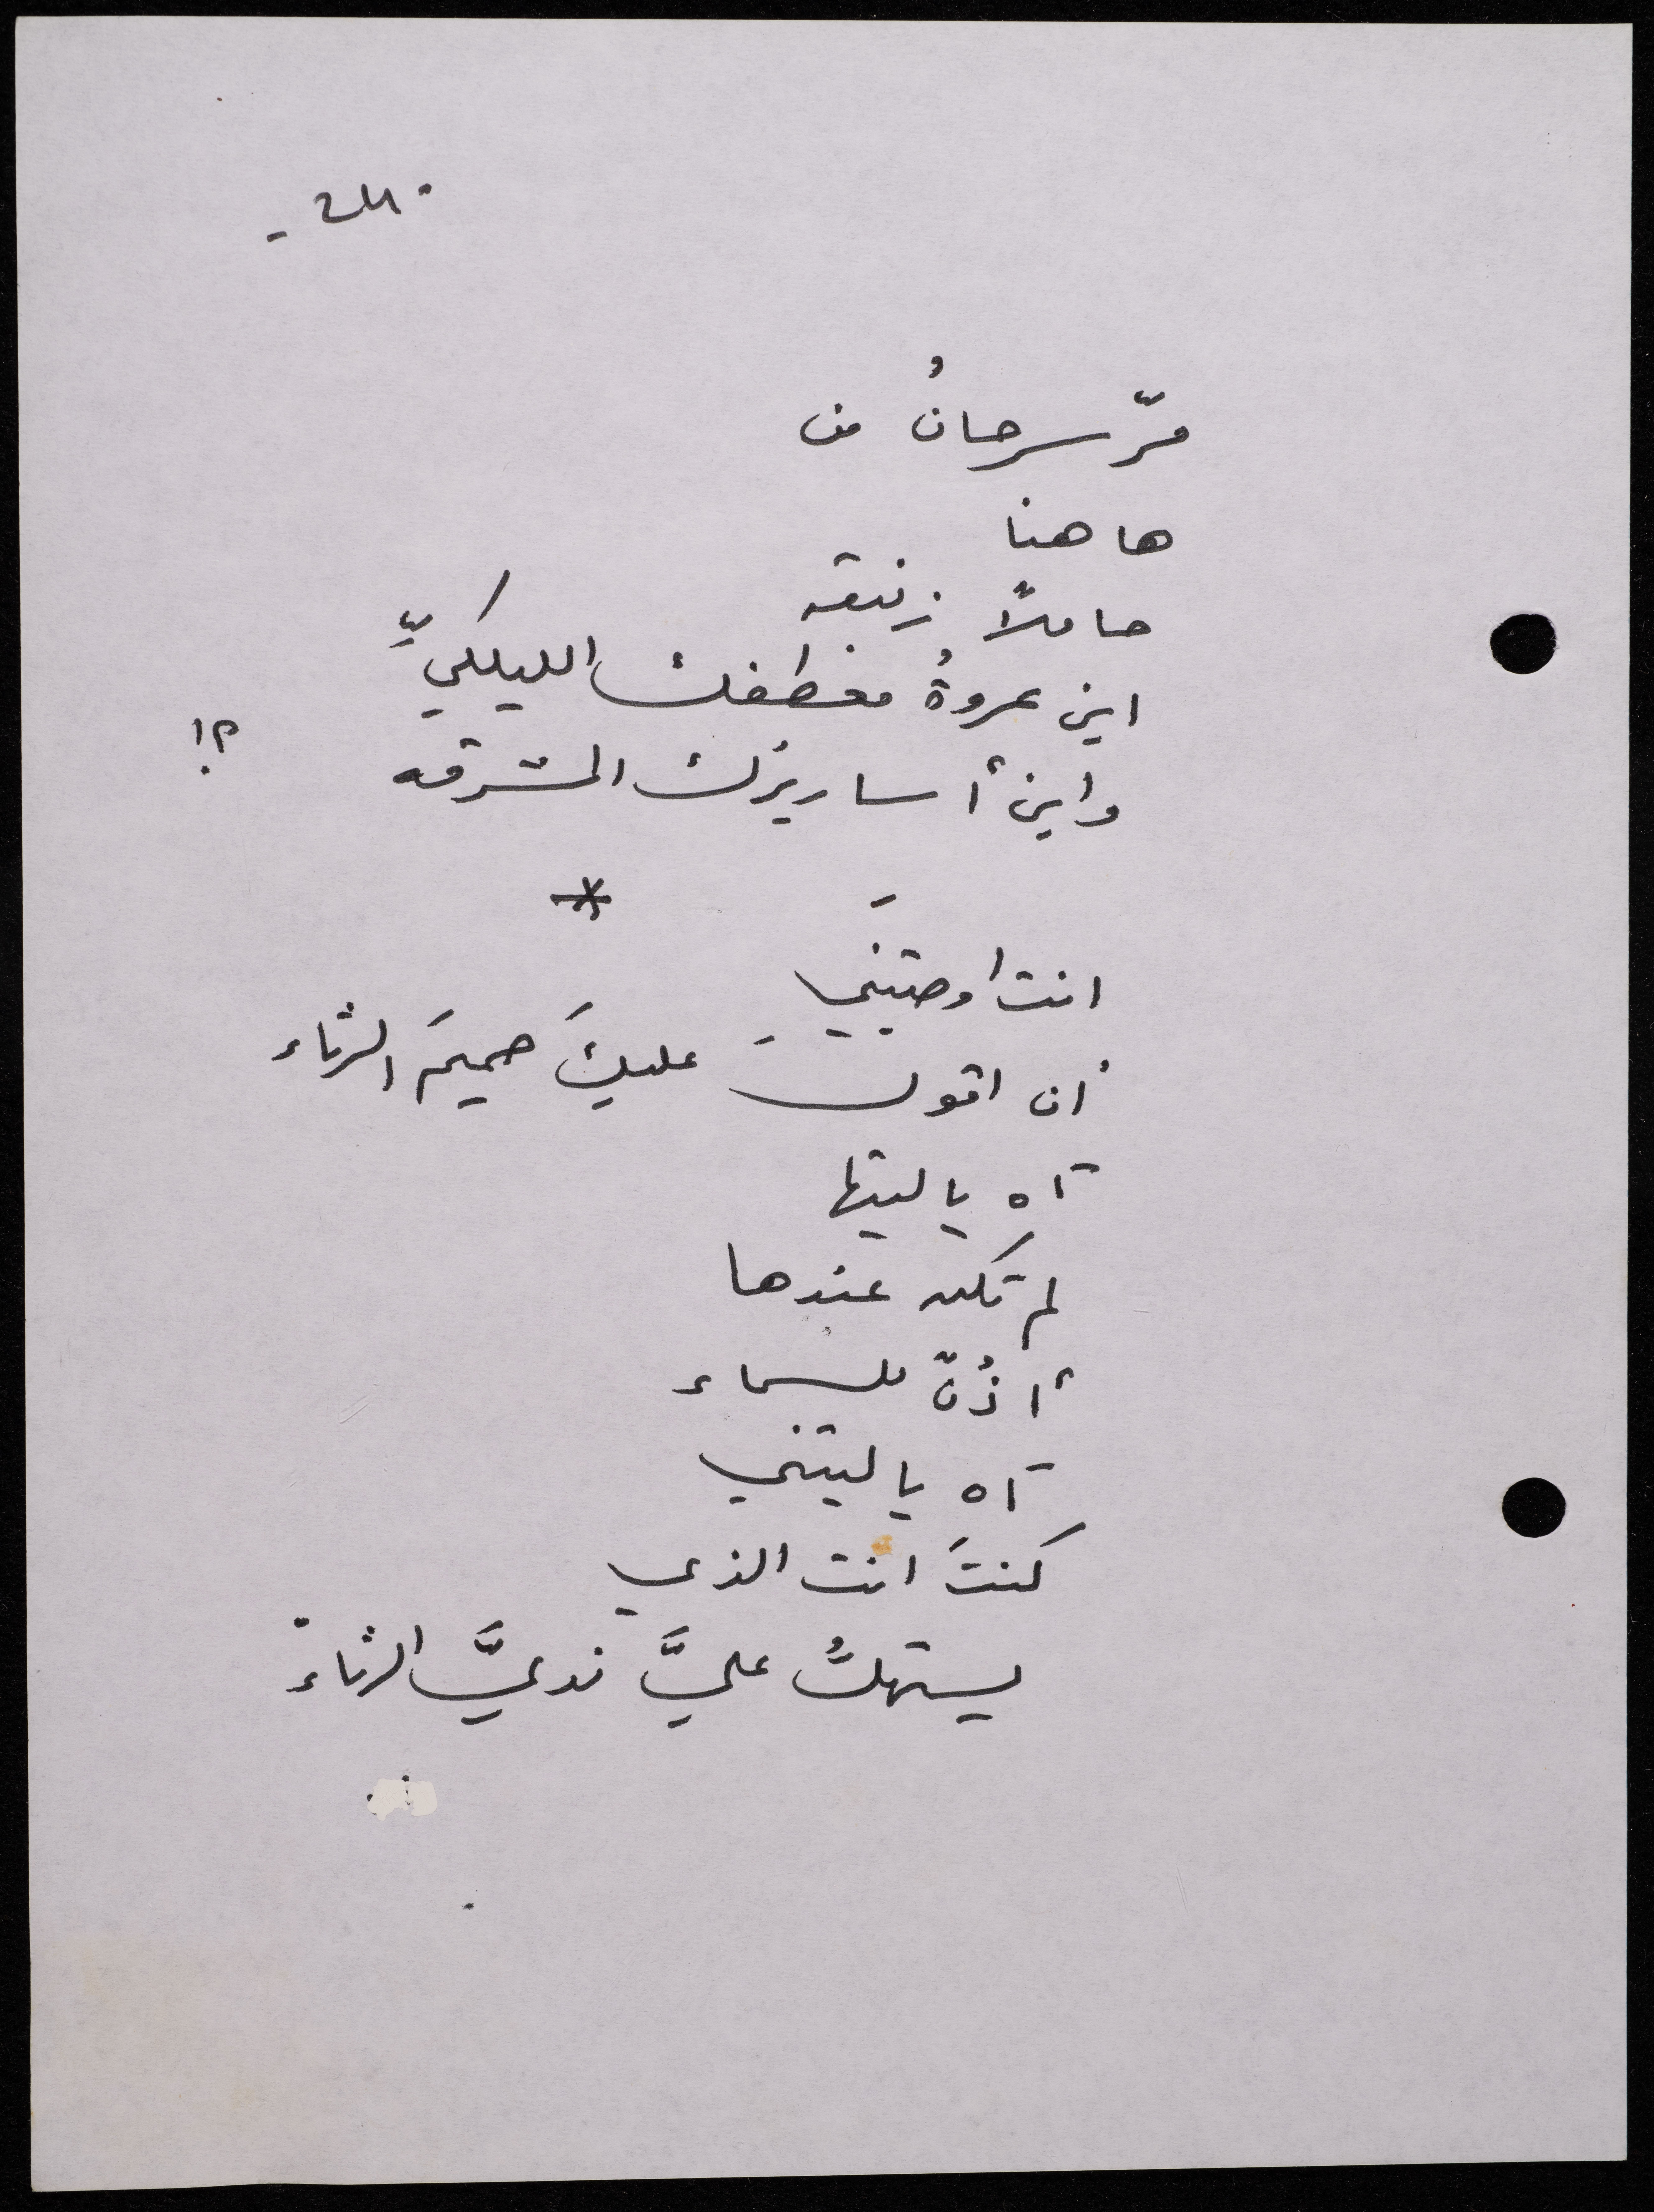 مرّ سرحانُ من
ها هنا
حاملاً زنبقه
اين عروةُ معطفك الليلكيِّ
واين أساريرك المشرقه ؟!
*
انت اوصيتَني
ان اقول عليكَ حميمَ الرثاء
آه يا ليتها
لم تكن عندها
أذُنٌ للسماء
آه يا ليتني
كنتَ انت الذي
يستهلُّ عليَّ نديَّ الرثاءْ